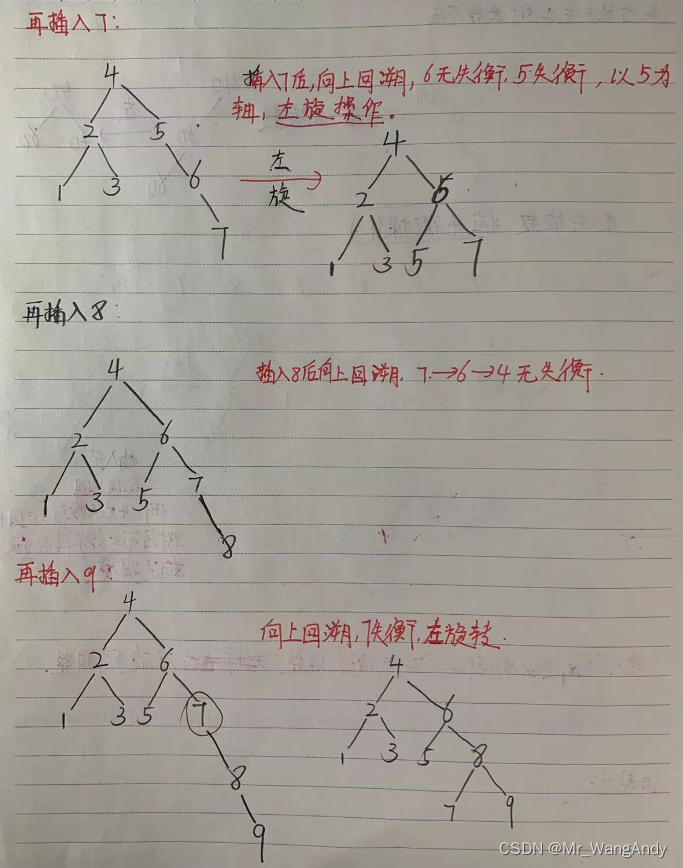 再插入7:
插入7后,向上回溯,6无失衡,5失衡,以5为
轴,左旋操作。
4
2 5
1 3 6
7
左
旋
4
2 6
1 3 5 7
再插入8:
插入8后向上回溯,7→6→4无失衡.
4
2 6
1 3 5 7
8
再插入9:
向上回溯,7失衡,左旋转.
4
2 6
1 3 5 7
8
9
4
2 6
1 3 5 8
7 9
CSDN @Mr_WangAndy